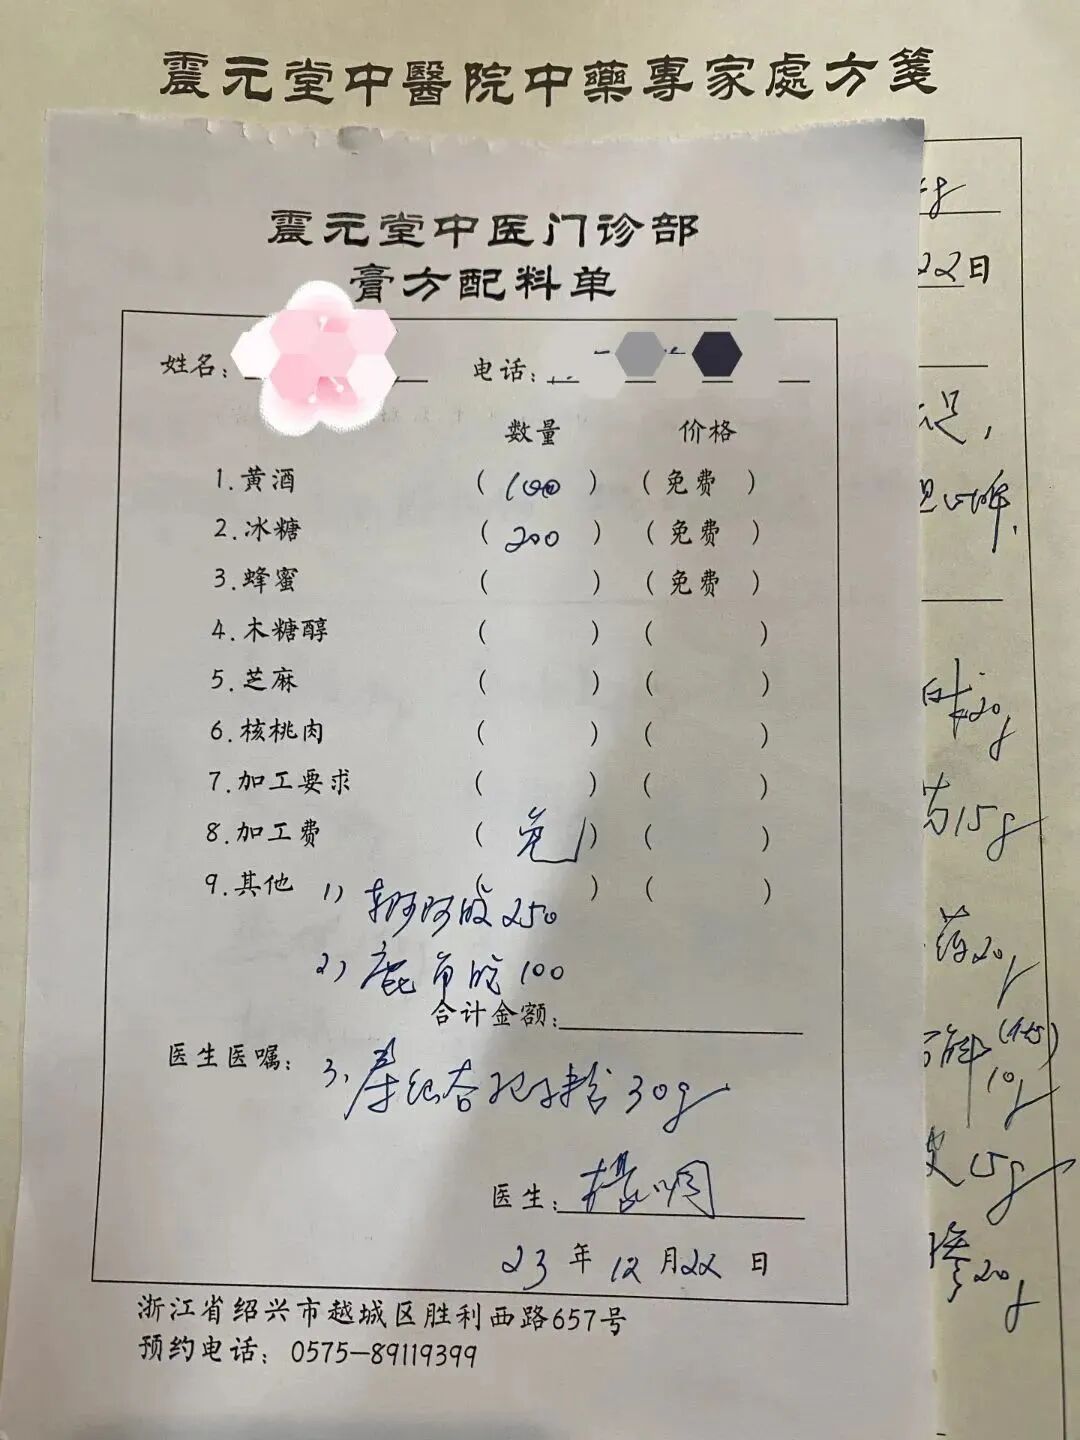 震元堂中醫院中藥專家處方箋
震元堂中医门诊部
膏方配料单
姓名: 电话:
数量 价格
1.黄酒 ( 100 ) ( 免费 )
2.冰糖 ( 200 ) ( 免费 )
3.蜂蜜 ( ) ( 免费 )
4.木糖醇 ( ) ( )
5.芝麻 ( ) ( )
6.核桃肉 ( ) ( )
7.加工要求 ( ) ( )
8.加工费 ( 免 ) ( )
9.其他 ( ) ( )
1) 阿胶250
2) 鹿角胶100
合计金额:
医生医嘱:
3、孢子粉30g
医生:
23年12月22日
浙江省绍兴市越城区胜利西路657号
预约电话: 0575-89119399
22日
足,
20g
15g
20g
10g
皮15g
20g